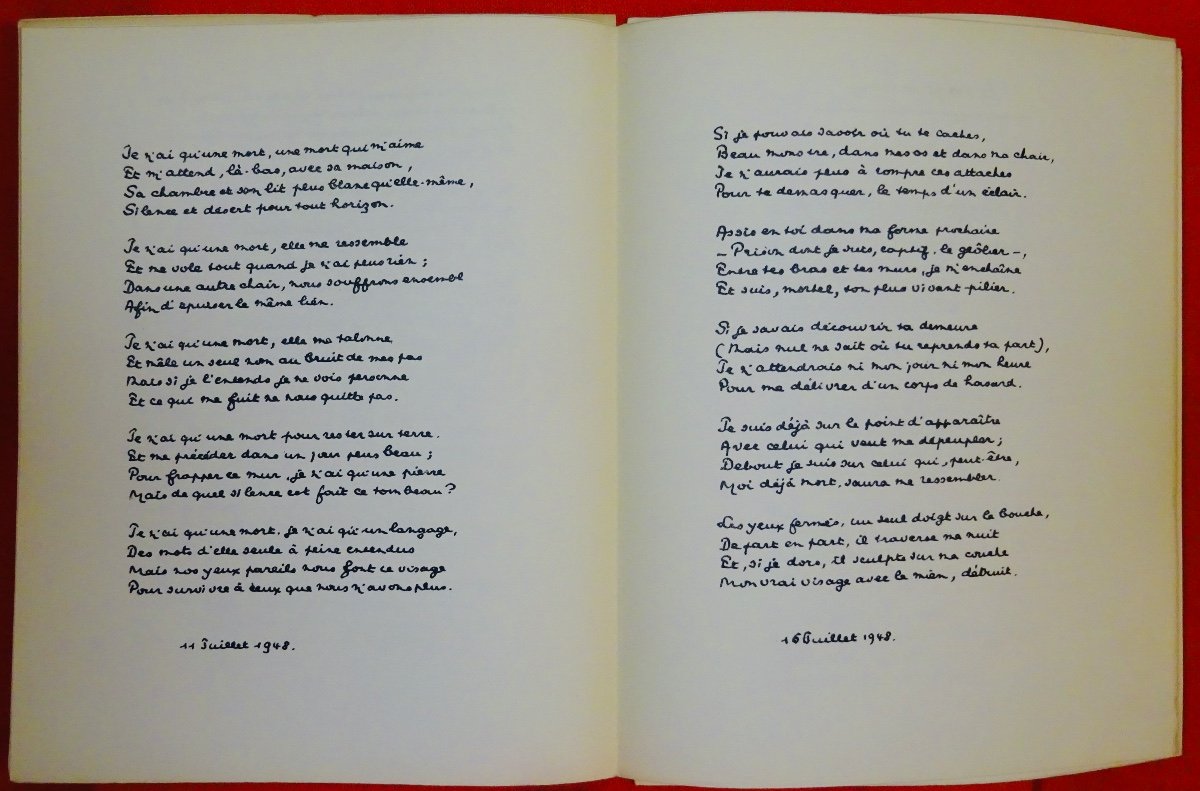 Je n'ai qu'une mort, une mort qui m'aime
Et m'attend, là-bas, avec sa maison,
Sa chambre et son lit plus blanc qu'elle-même,
Silence et désert pour tout horizon.
Je n'ai qu'une mort, elle me ressemble
Et me vole tout quand je n'ai plus rien ;
Dans une autre chair, nous souffrons ensembl
Afin d'épuiser le même lien.
Je n'ai qu'une mort, elle me talonne
Et mêle un seul nom au bruit de mes pas
Mais si je l'entends je ne vois personne
Et ce qui me fuit ne nous quitte pas.
Je n'ai qu'une mort pour rester sur terre.
Et me précéder dans un jour plus beau ;
Pour frapper ce mur, je n'ai qu'une pierre
Mais de quel silence est fait ce tombeau ?
Je n'ai qu'une mort, je n'ai qu'un langage,
Des mots d'elle seule à peine entendus
Mais nos yeux pareils nous font ce visage
Pour survivre à ceux que nous n'avons plus.
11 Juillet 1948.
Si je pouvais savoir où tu te caches,
Beau monstre, dans mes os et dans ma chair,
Je n'aurais plus à rompre ces attaches
Pour te démasquer, le temps d'un éclair.
Assis en toi dans ma forme prochaine
– Prison dont je suis, captif, le geôlier –,
Entre tes bras et tes murs, je m'enchaîne
Et suis, mortel, ton plus vivant pilier.
Si je savais découvrir ta demeure
(Mais nul ne sait où tu reprends ta part),
Je n'attendrais ni mon jour ni mon heure
Pour me délivrer d'un corps de hasard.
Je suis déjà sur le point d'apparaître
Avec celui qui veut me dépeupler ;
Debout je suis sur celui qui, peut-être,
Moi déjà mort, saura me ressembler.
Les yeux fermés, un seul doigt sur la bouche,
De part en part, il traverse ma nuit
Et, si je dors, il sculpte sur ma couche
Mon vrai visage avec le mien, détruit.
16 Juillet 1948.